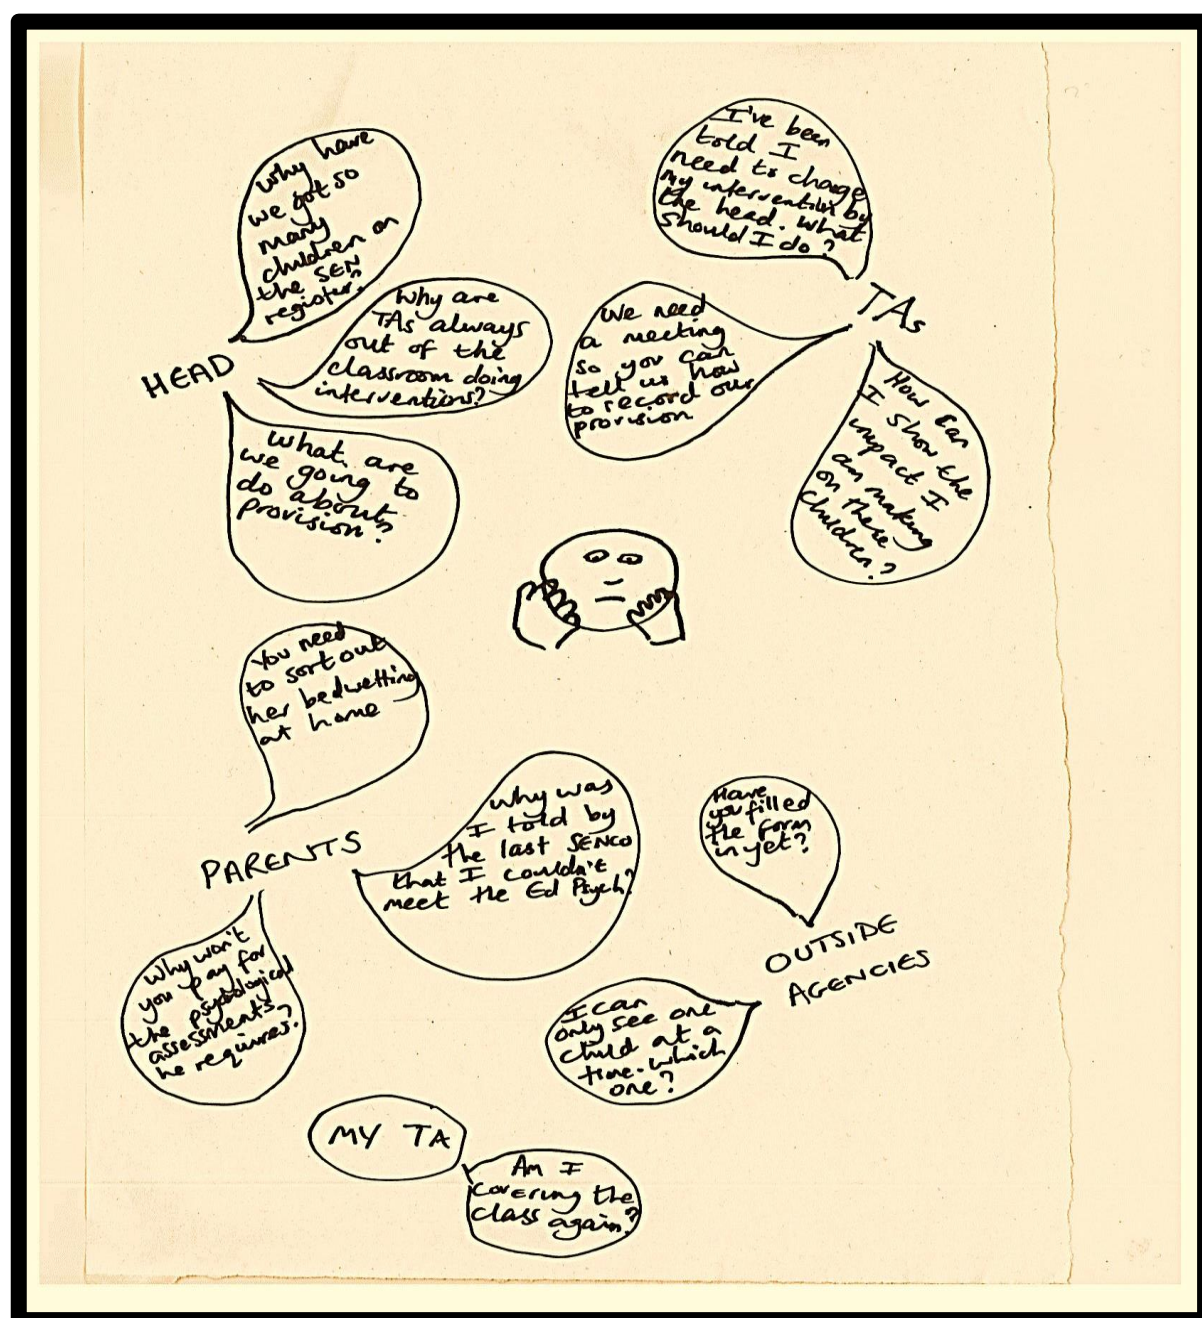 Why have
we got so
many
children on
the SEN
register?
HEAD
Why are
TAs always
out of the
classroom doing
interventions?
What are
we going to
do about
provision?
I've been
told I
need to change
my intervention by
the head. What
should I do?
TAs
We need
a meeting
so you can
tell us how
to record our
provision
How can
I show the
impact I
am making
on these
children?
You need
to sort out
her bedwetting
at home
PARENTS
Why was
I told by
the last SENCO
that I couldn't
meet the Ed Psych?
Why won't
you pay for
the psycological
assessments
he requires?
Have
you filled
the form
in yet?
OUTSIDE
AGENCIES
I can
only see one
child at a
time. which
one?
MY TA
Am I
covering the
class again?